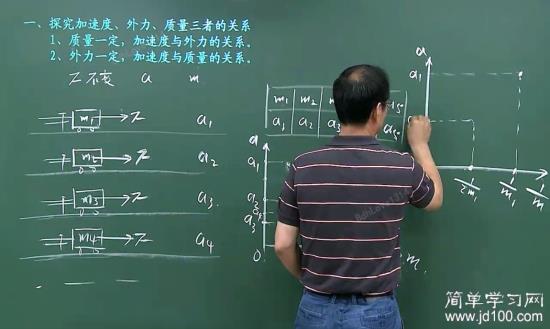 一、探究加速度、外力、质量三者的关系
1、质量一定，加速度与外力的关系。
2、外力一定，加速度与质量的关系。
不变 a m
m₁ a₁
m₂ a₂
m₃ a₃
m₄ a₄
m₁ m₂
a₁ a₂ a₃
a
a₁
a₂
a₃
0
m
a
a₁
1/2m₁ 1/m₁ 1/m
简单学习网
www.jd100.com